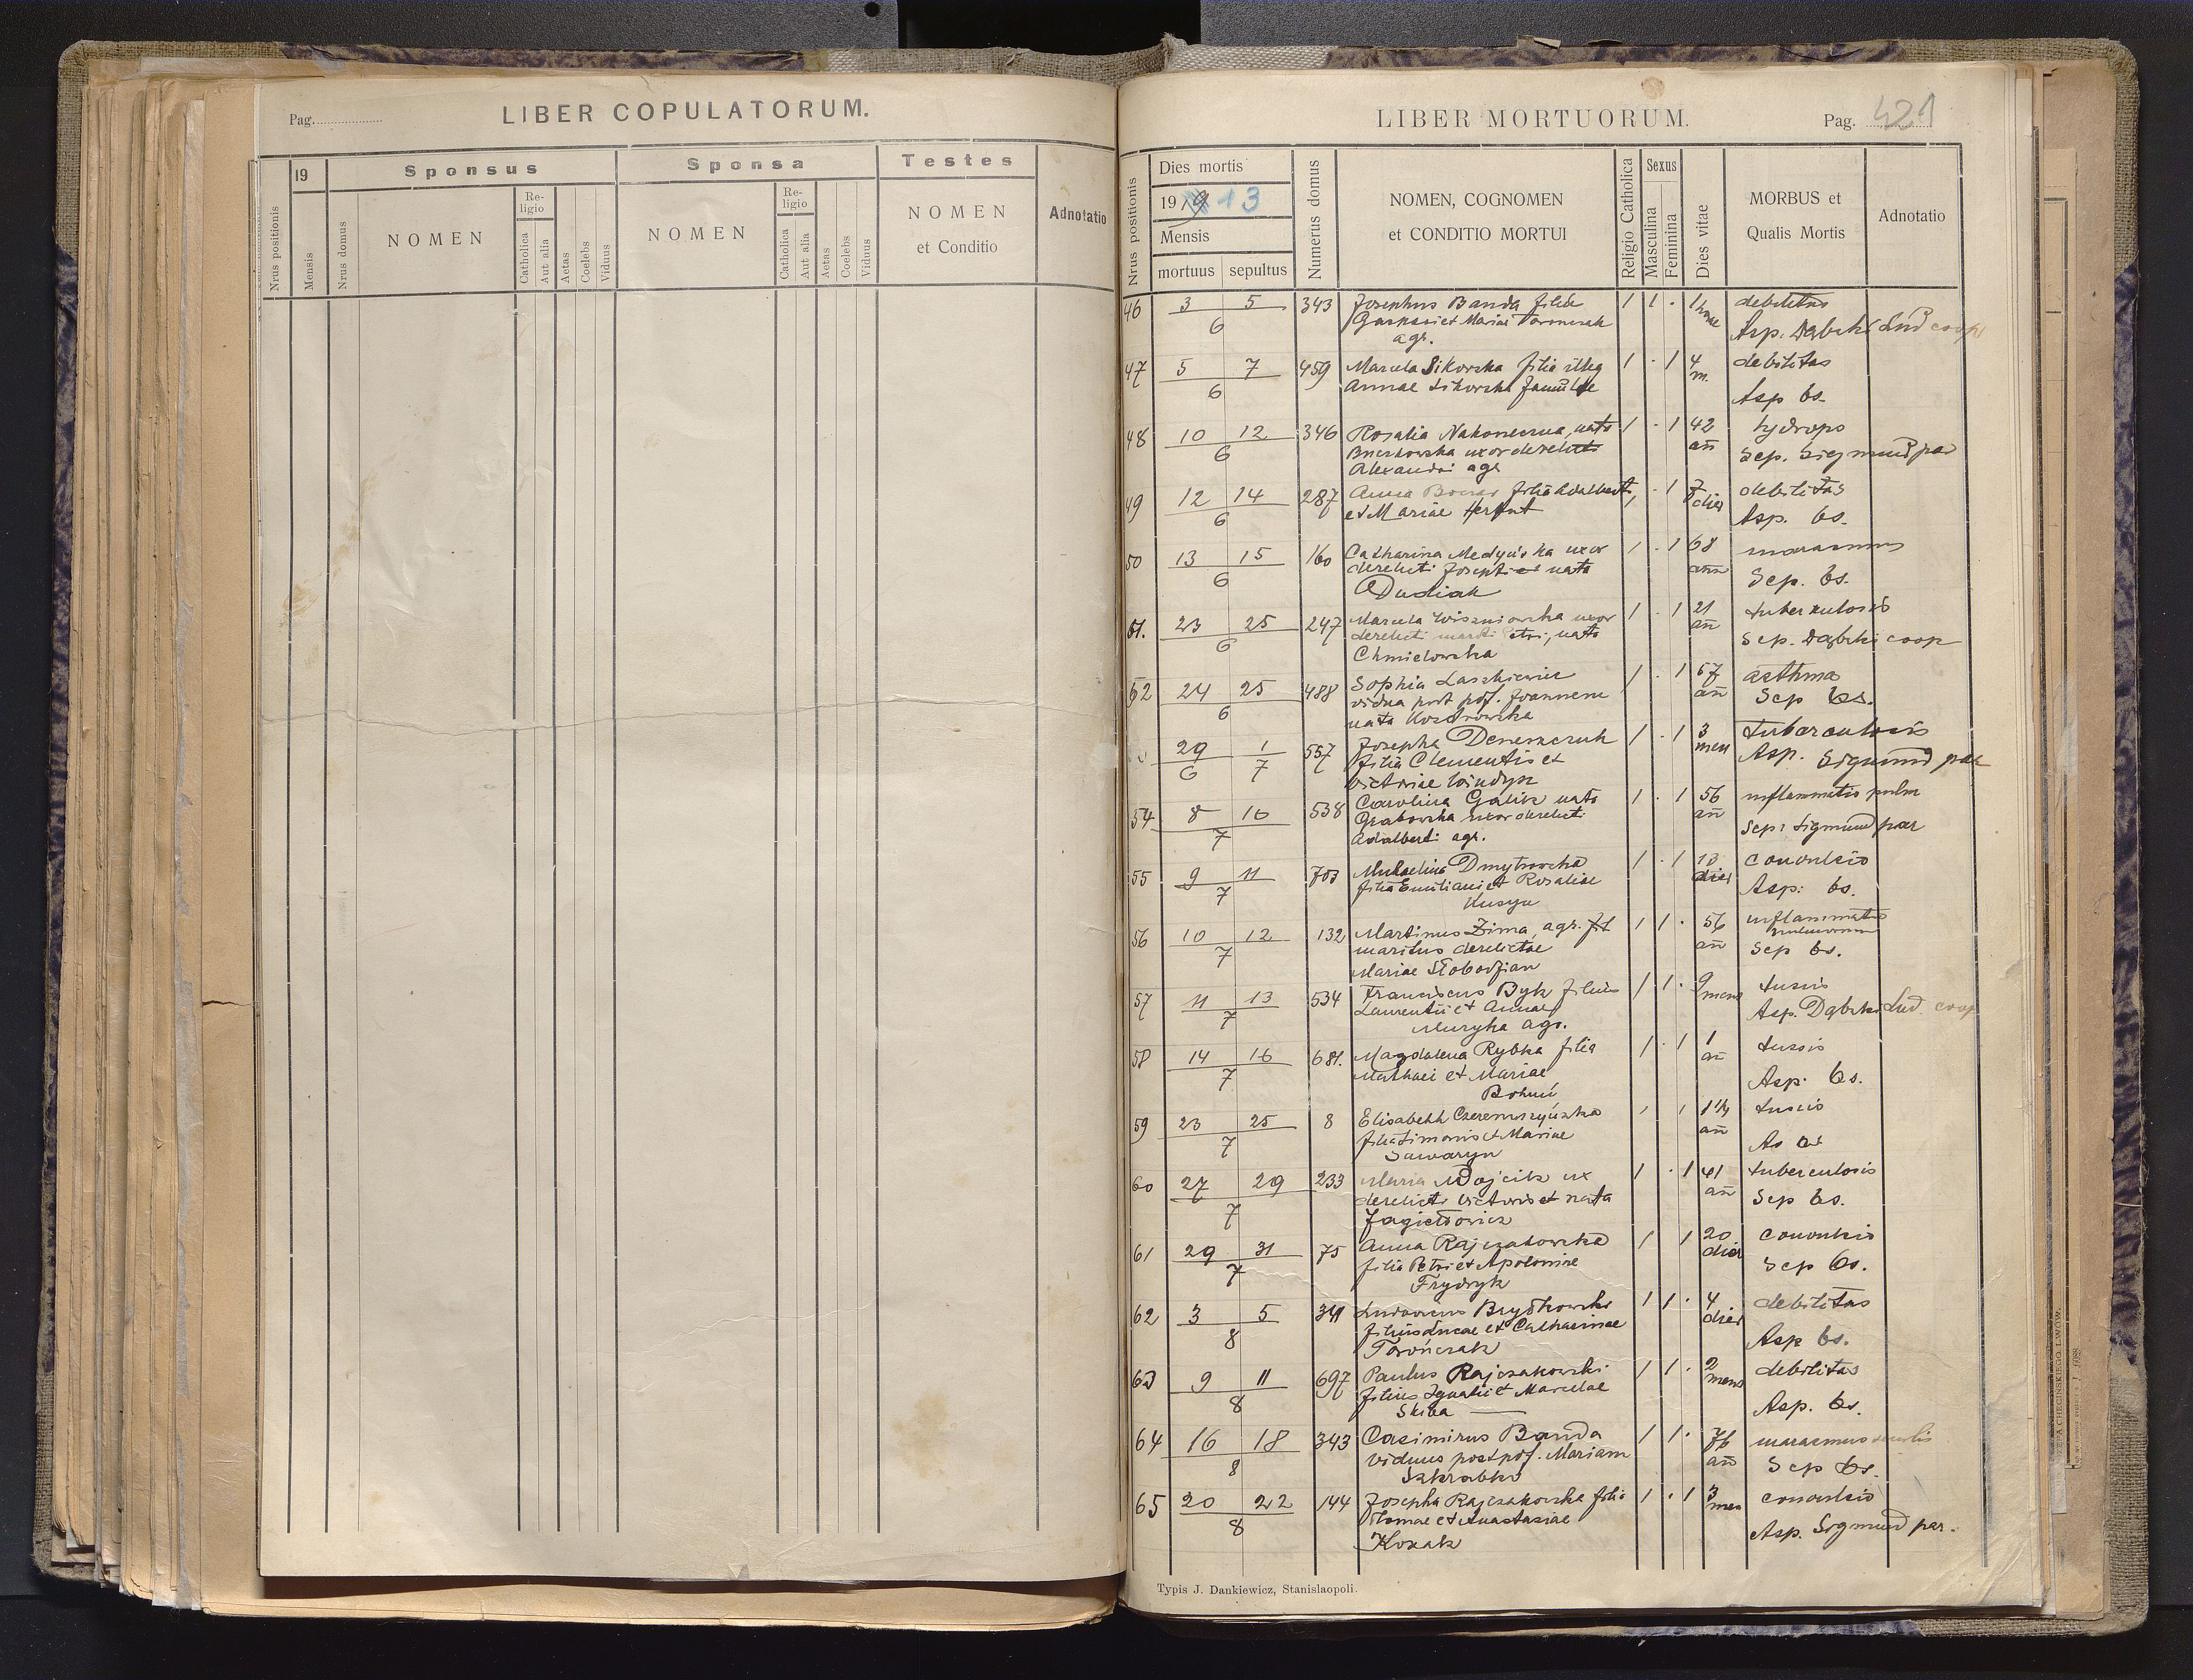 Pag.
LIBER COPULATORUM.
19
Sponsus
Sponsa
Testes
Nrus positionis
Mensis
Nrus domus
NOMEN
Religio
Catholica
Aut alia
Aetas
Coelebs
Viduus
NOMEN
Religio
Catholica
Aut alia
Aetas
Coelebs
Viduus
NOMEN
et Conditio
Adnotatio
LIBER MORTUORUM.
Pag. 421
Nrus positionis
Dies mortis
1913
Mensis
mortuus sepultus
Numerus domus
NOMEN, COGNOMEN
et CONDITIO MORTUI
Religio Catholica
Sexus
Masculina
Feminina
Dies vitae
MORBUS et
Qualis Mortis
Adnotatio
46 3 5 343 Josephus Banda filius 1 1 · debilitas
6 et Mariae Torończak Asp. Dąbski Lud coop
agr.
47 5 7 459 Marcela Sikorska filia illeg 1 · 1 4 debilitas
6 Annae Sikorska famulae m. Asp bs.
48 10 12 346 Rosalia nata 1 · 1 42 hydrops
6 uxor derelicti an Sep. Sigmund par
Alexandri agr
49 12 14 287 Anna filia Adalberti · 1 7 debilitas
6 et Mariae dies Asp. bs.
50 13 15 160 Catharina Medyńska uxor 1 · 1 68 marasmus
6 derelicti Josephi nata ann Sep. bs.
Dudiak
51. 23 25 247 Marcela Wiszniowska uxor 1 · 1 21 tuberkulosis
6 derelicti Petri, nata an Sep. Dąbski coop
Chmielowska
52 24 25 488 Sophia Laszkiewicz 1 · 1 57 asthma
6 vidua post pdf. Joannem an Sep bs.
nata
29 1 557 Josepha Deneszczuk 1 · 1 3 tuberculosis
6 7 filia Clementis et men Asp. Sigmund par
Victoriae
54 8 10 538 Carolina Galik nata 1 · 1 56 inflammatio pulm
7 Grabowska uxor derelicti an Sep: Sigmund par
Adalberti agr.
55 9 11 703 Dmytrowska 1 · 1 convulsio
7 filia Emiliani et Rosaliae dies Asp: bs.
Kusyn
56 10 12 132 Martinus Zima, agr. 1 1 · 56 inflammatio
7 maritus derelictae an Sep bs.
Mariae Słobodzian
57 11 13 534 Franciscus Byk filius 1 1 · 9 tussis
7 Laurentii et Annae mens Asp. Dąbski Lud. coop
Muryka agr.
58 14 16 681. Magdalena Rybka filia 1 · 1 1 tussis
7 Mathaei et Mariae an Asp. bs.
Bohuń
59 23 25 8 Elisabeth Czeremszyńska 1 1 tussis
7 filia Simonis et Mariae an As bs
Sawaryn
60 27 29 233 Maria Wojcik ux 1 · 1 41 tuberculosis
7 derelicti Victoris et nata an Sep bs.
Jagiełłowicz
61 29 31 75 Anna Rajczakowska 1 1 20 convulsio
7 filia Petri et Apoloniae dies Sep bs.
Frydryk
62 3 5 341 Ludovicus 1 1 · 4 debilitas
8 filius Lucae et Catharinae dies Asp bs.
Torończak
63 9 11 697 Paulus Rajczakowski 1 1 · 2 debilitas
8 filius Ignatii et Marcelae mens Asp. bs.
Skiba
64 16 18 343 Casimirus Banda 1 1 · 76 marasmus senilis
8 viduus post pdf. Mariam an Sep bs.
Szkrabko
65 20 22 144 Josepha Rajczakowska filia 1 · 1 3 convulsio
8 Thomae et Anastasiae men Asp. Sigmund par.
Kozak
Typis J. Dankiewicz, Stanislaopoli.